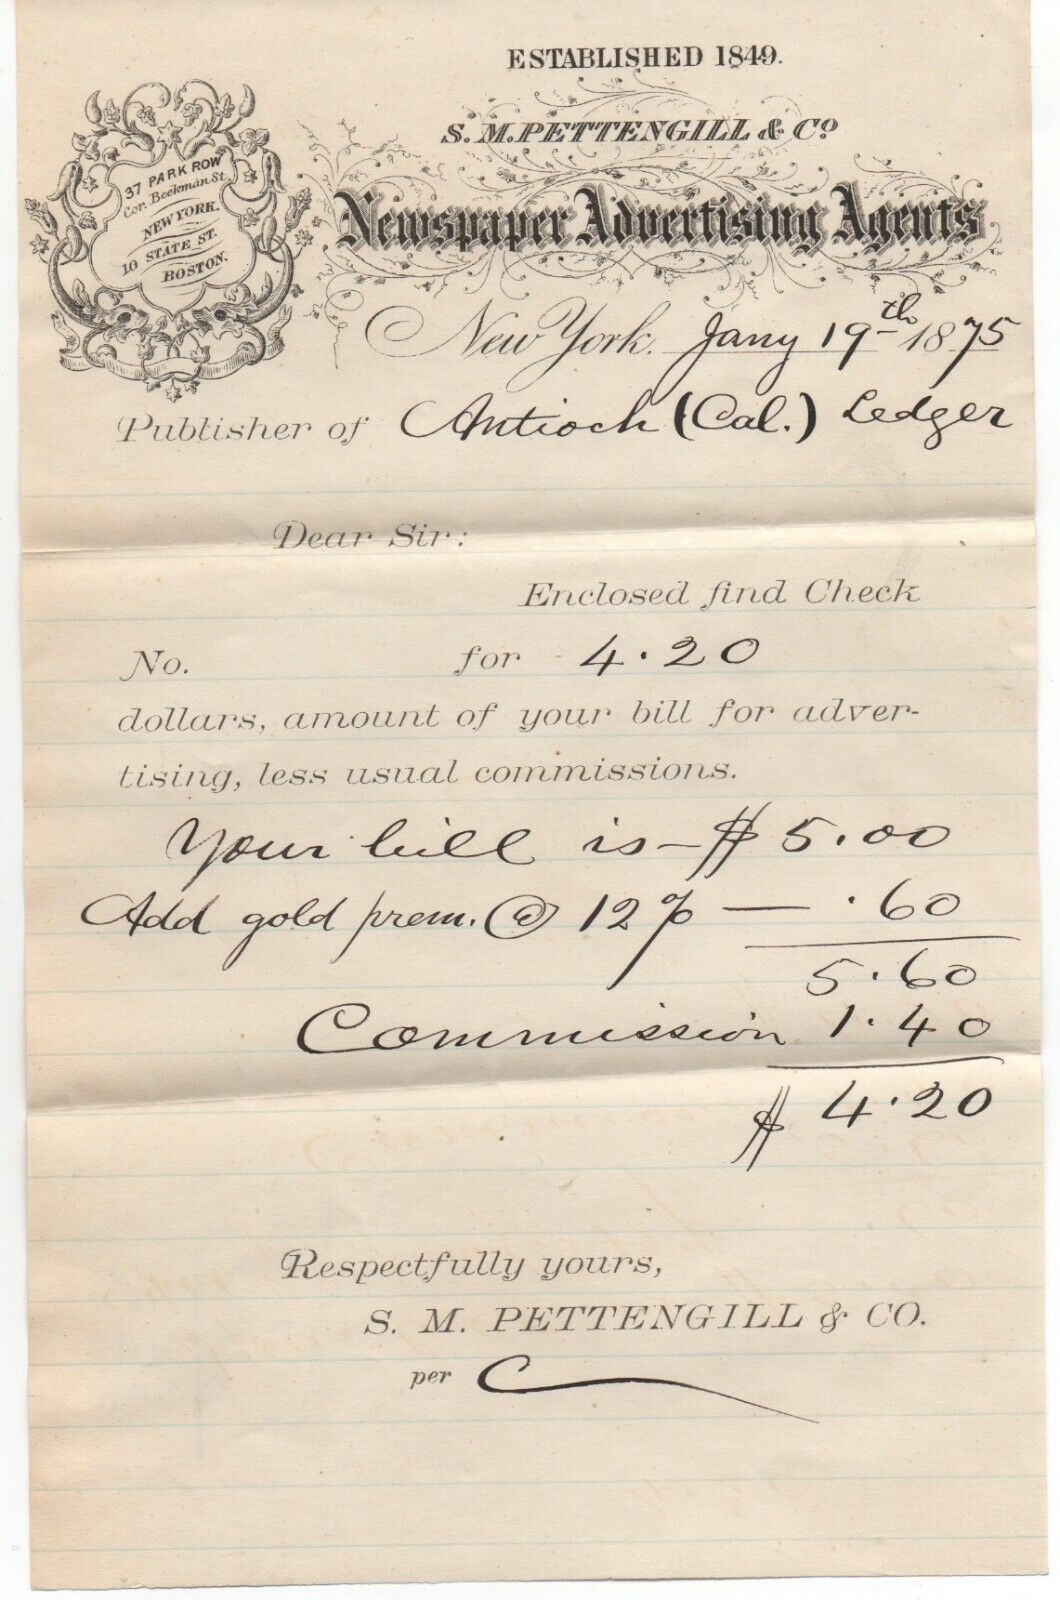 ESTABLISHED 1849.
S. M. PETTENGILL & Co.
Newspaper Advertising Agents
37 PARK ROW
Cor. Beekman St.
NEW YORK.
10 STATE ST.
BOSTON.
New York. Jany 19th 1875
Publisher of Antioch (Cal.) Ledger
Dear Sir:
Enclosed find Check
No. for 4.20
dollars, amount of your bill for adver-
tising, less usual commissions.
Your bill is — $ 5.00
Add gold prem. @ 12 % — .60
5.60
Commission 1.40
$ 4.20
Respectfully yours,
S. M. PETTENGILL & CO.
per C